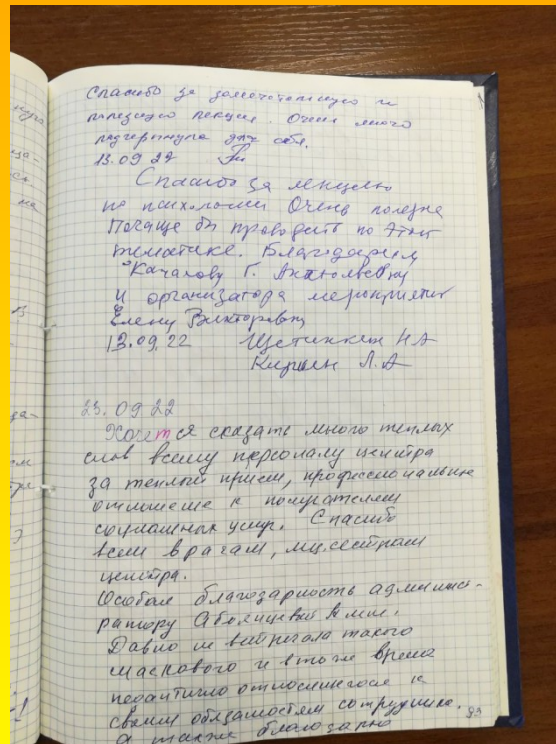 Спасибо за замечательную и
полезную лекцию. Очень много
подчеркнула для себя.
13.09.22
Спасибо за лекцию
по психологии Очень полезна
Почаще бы проводить по этой
тематике. Благодарим
Качалову Г. Анатольевну
и организатора мероприятия
Елену Викторовну
13.09.22 Н.А
Л.А
23.09.22
Хочется сказать много теплых
слов всему персоналу центра
за теплый прием, профессиональное
отношение к получателям
социальных услуг. Спасибо
всем врачам, мед.сестрам
центра.
Особая благодарность админист-
ратору
Давно не встречала такого
ласкового и в то же время
педантично относящегося к
своим обязанностям сотрудника.
А также благодарю
93